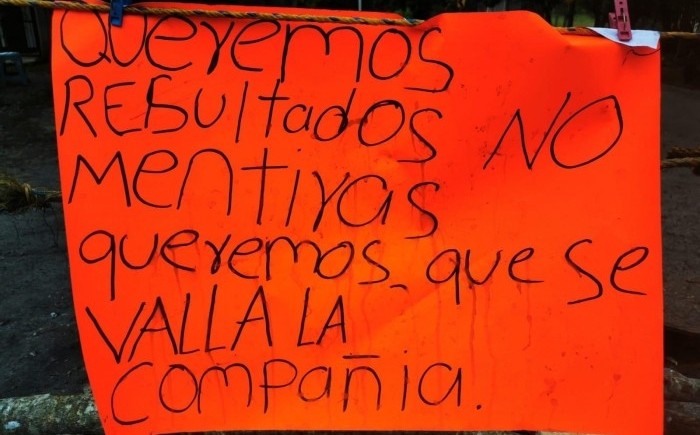 Queremos
RESultados NO
Mentiras
queremos que se
VALLA LA
compañia.